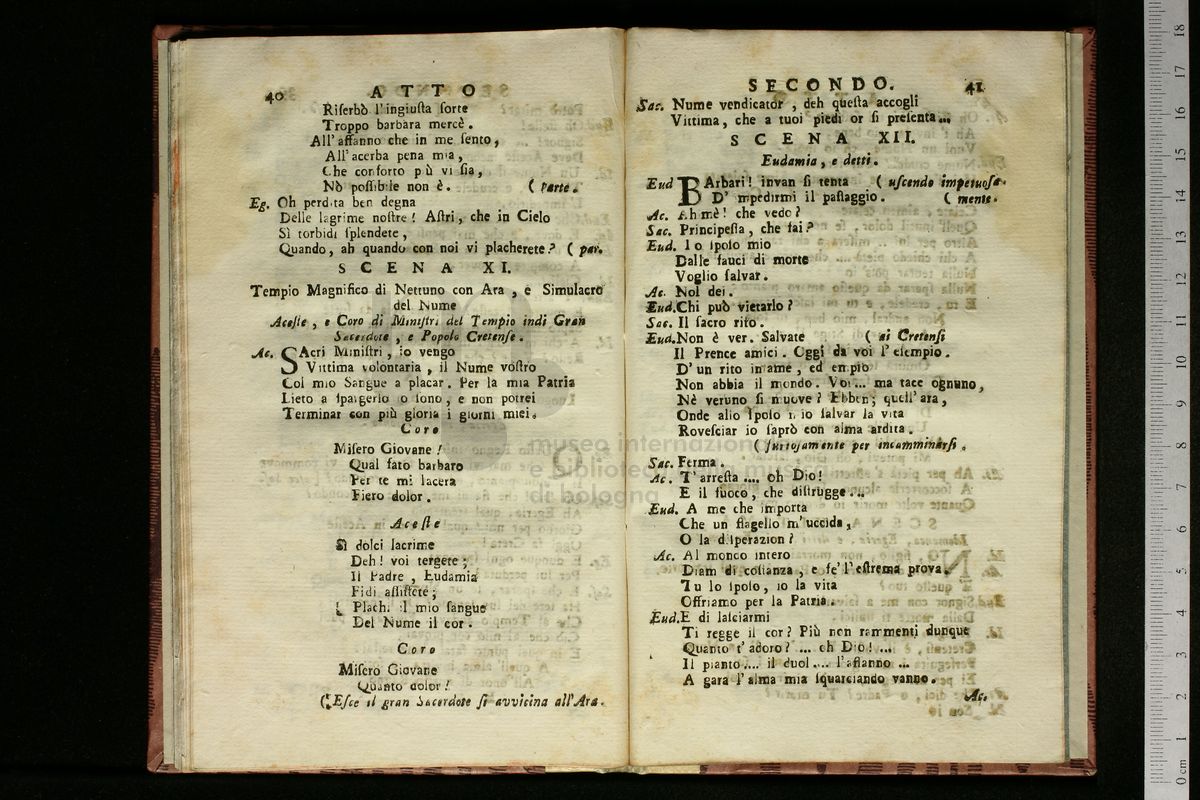 40 ATTO
Riserbò l'ingiusta sorte
Troppo barbara mercè.
All'affanno che in me sento,
All'acerba pena mia,
Che conforto più vi sia,
Nò possibile non è. ( Parte.
Eg. Oh perdita ben degna
Delle lagrime nostre! Astri, che in Cielo
Sì torbidi splendete,
Quando, ah quando con noi vi placherete? ( par.
SCENA XI.
Tempio Magnifico di Nettuno con Ara, e Simulacro
del Nume
Aceste, e Coro di Ministri del Tempio indi Gran
Sacerdote, e Popolo Cretense.
Ac. SAcri Ministri, io vengo
Vittima volontaria, il Nume vostro
Col mio Sangue a placar. Per la mia Patria
Lieto a spargerlo io sono, e non potrei
Terminar con più gloria i giorni miei.
Coro
Misero Giovane!
Qual fato barbaro
Per te mi lacera
Fiero dolor.
Aceste
Sì dolci lacrime
Deh! voi tergete;
Il Padre, Eudamia
Fidi assistete;
Plachi il mio sangue
Del Nume il cor.
Coro
Misero Giovane
Quanto dolor!
( Esce il gran Sacerdote si avvicina all'Ara.
SECONDO. 41
Sac. Nume vendicator, deh questa accogli
Vittima, che a tuoi piedi or si presenta...
SCENA XII.
Eudamia, e detti.
Eud BArbari! invan si tenta ( uscendo impetuosa-
D'impedirmi il passaggio. ( mente.
Ac. Ahmè! che vedo?
Sac. Principessa, che fai?
Eud. Io sposo mio
Dalle fauci di morte
Voglio salvar.
Ac. Nol dei.
Eud. Chi può vietarlo?
Sac. Il sacro rito.
Eud. Non è ver. Salvate ( ai Cretensi
Il Prence amici. Oggi da voi l'esempio.
D'un rito infame, ed empio
Non abbia il mondo. Voi... ma tace ognuno,
Nè veruno si muove? Ebben; quell'ara,
Onde allo sposo mio salvar la vita
Rovesciar io saprò con alma ardita.
( furiosamente per incamminarsi.
Sac. Ferma.
Ac. T'arresta .... oh Dio!
E il fuoco, che distrugge...
Eud. A me che importa
Che un flagello m'uccida,
O la disperazion?
Ac. Al mondo intero
Diam di costanza, e fe' l'estrema prova.
Tu lo sposo, io la vita
Offriamo per la Patria.
Eud. E di lasciarmi
Ti regge il cor? Più non rammenti dunque
Quanto t'adoro? ... oh Dio! ...
Il pianto.... il duol.... l'affanno ...
A gara l'alma mia squarciando vanno.
Ac.
museo internazionale
e biblioteca della musica
di bologna
18
17
16
15
14
13
12
11
10
9
8
7
6
5
4
3
2
1
0 cm